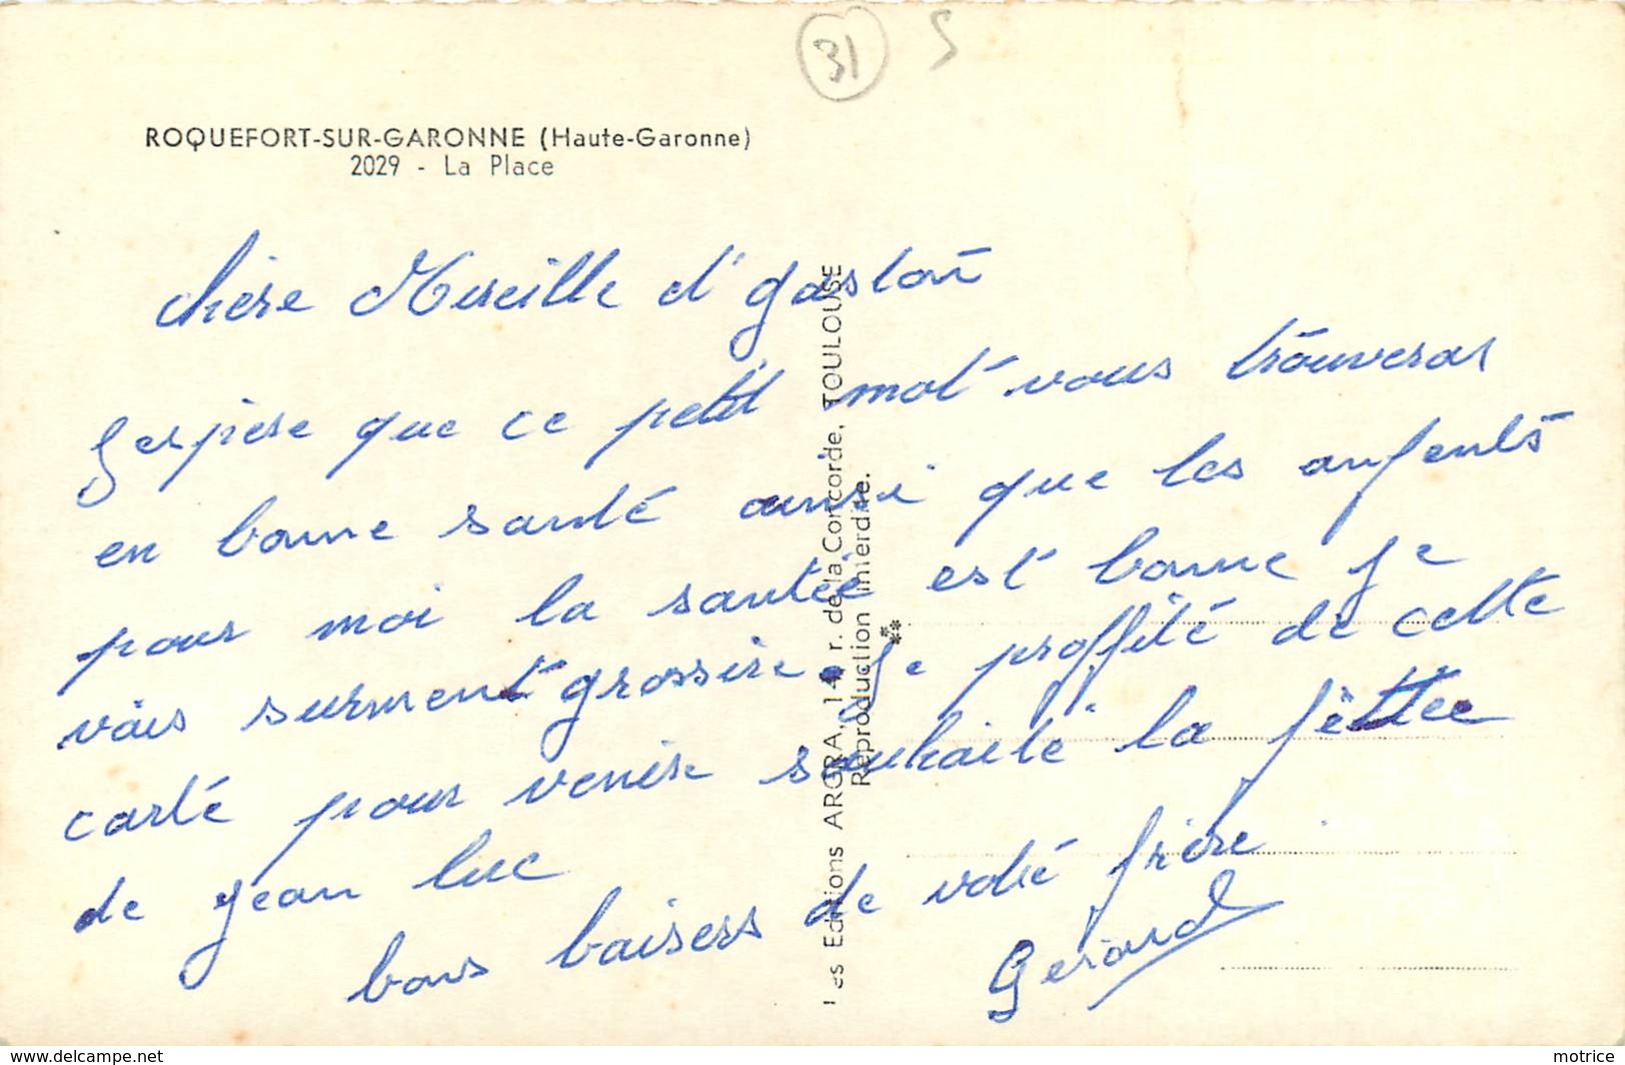 31 S
ROQUEFORT-SUR-GARONNE (Haute-Garonne)
2029 - La Place
chère Mireille et gaston
J'espère que ce petit mot vous trouveras
en bonne santé ainsi que les enfents
pour moi la santée est bonne je
vais surment grossire. Je proffité de cette
carté pour venire souhaité la fèttee
de jean luc
bons baisers de votre frère
Gerard
Les Editions ARGRA, 14, r. de la Concorde, TOULOUSE
Reproduction interdite.
www.delcampe.net
motrice